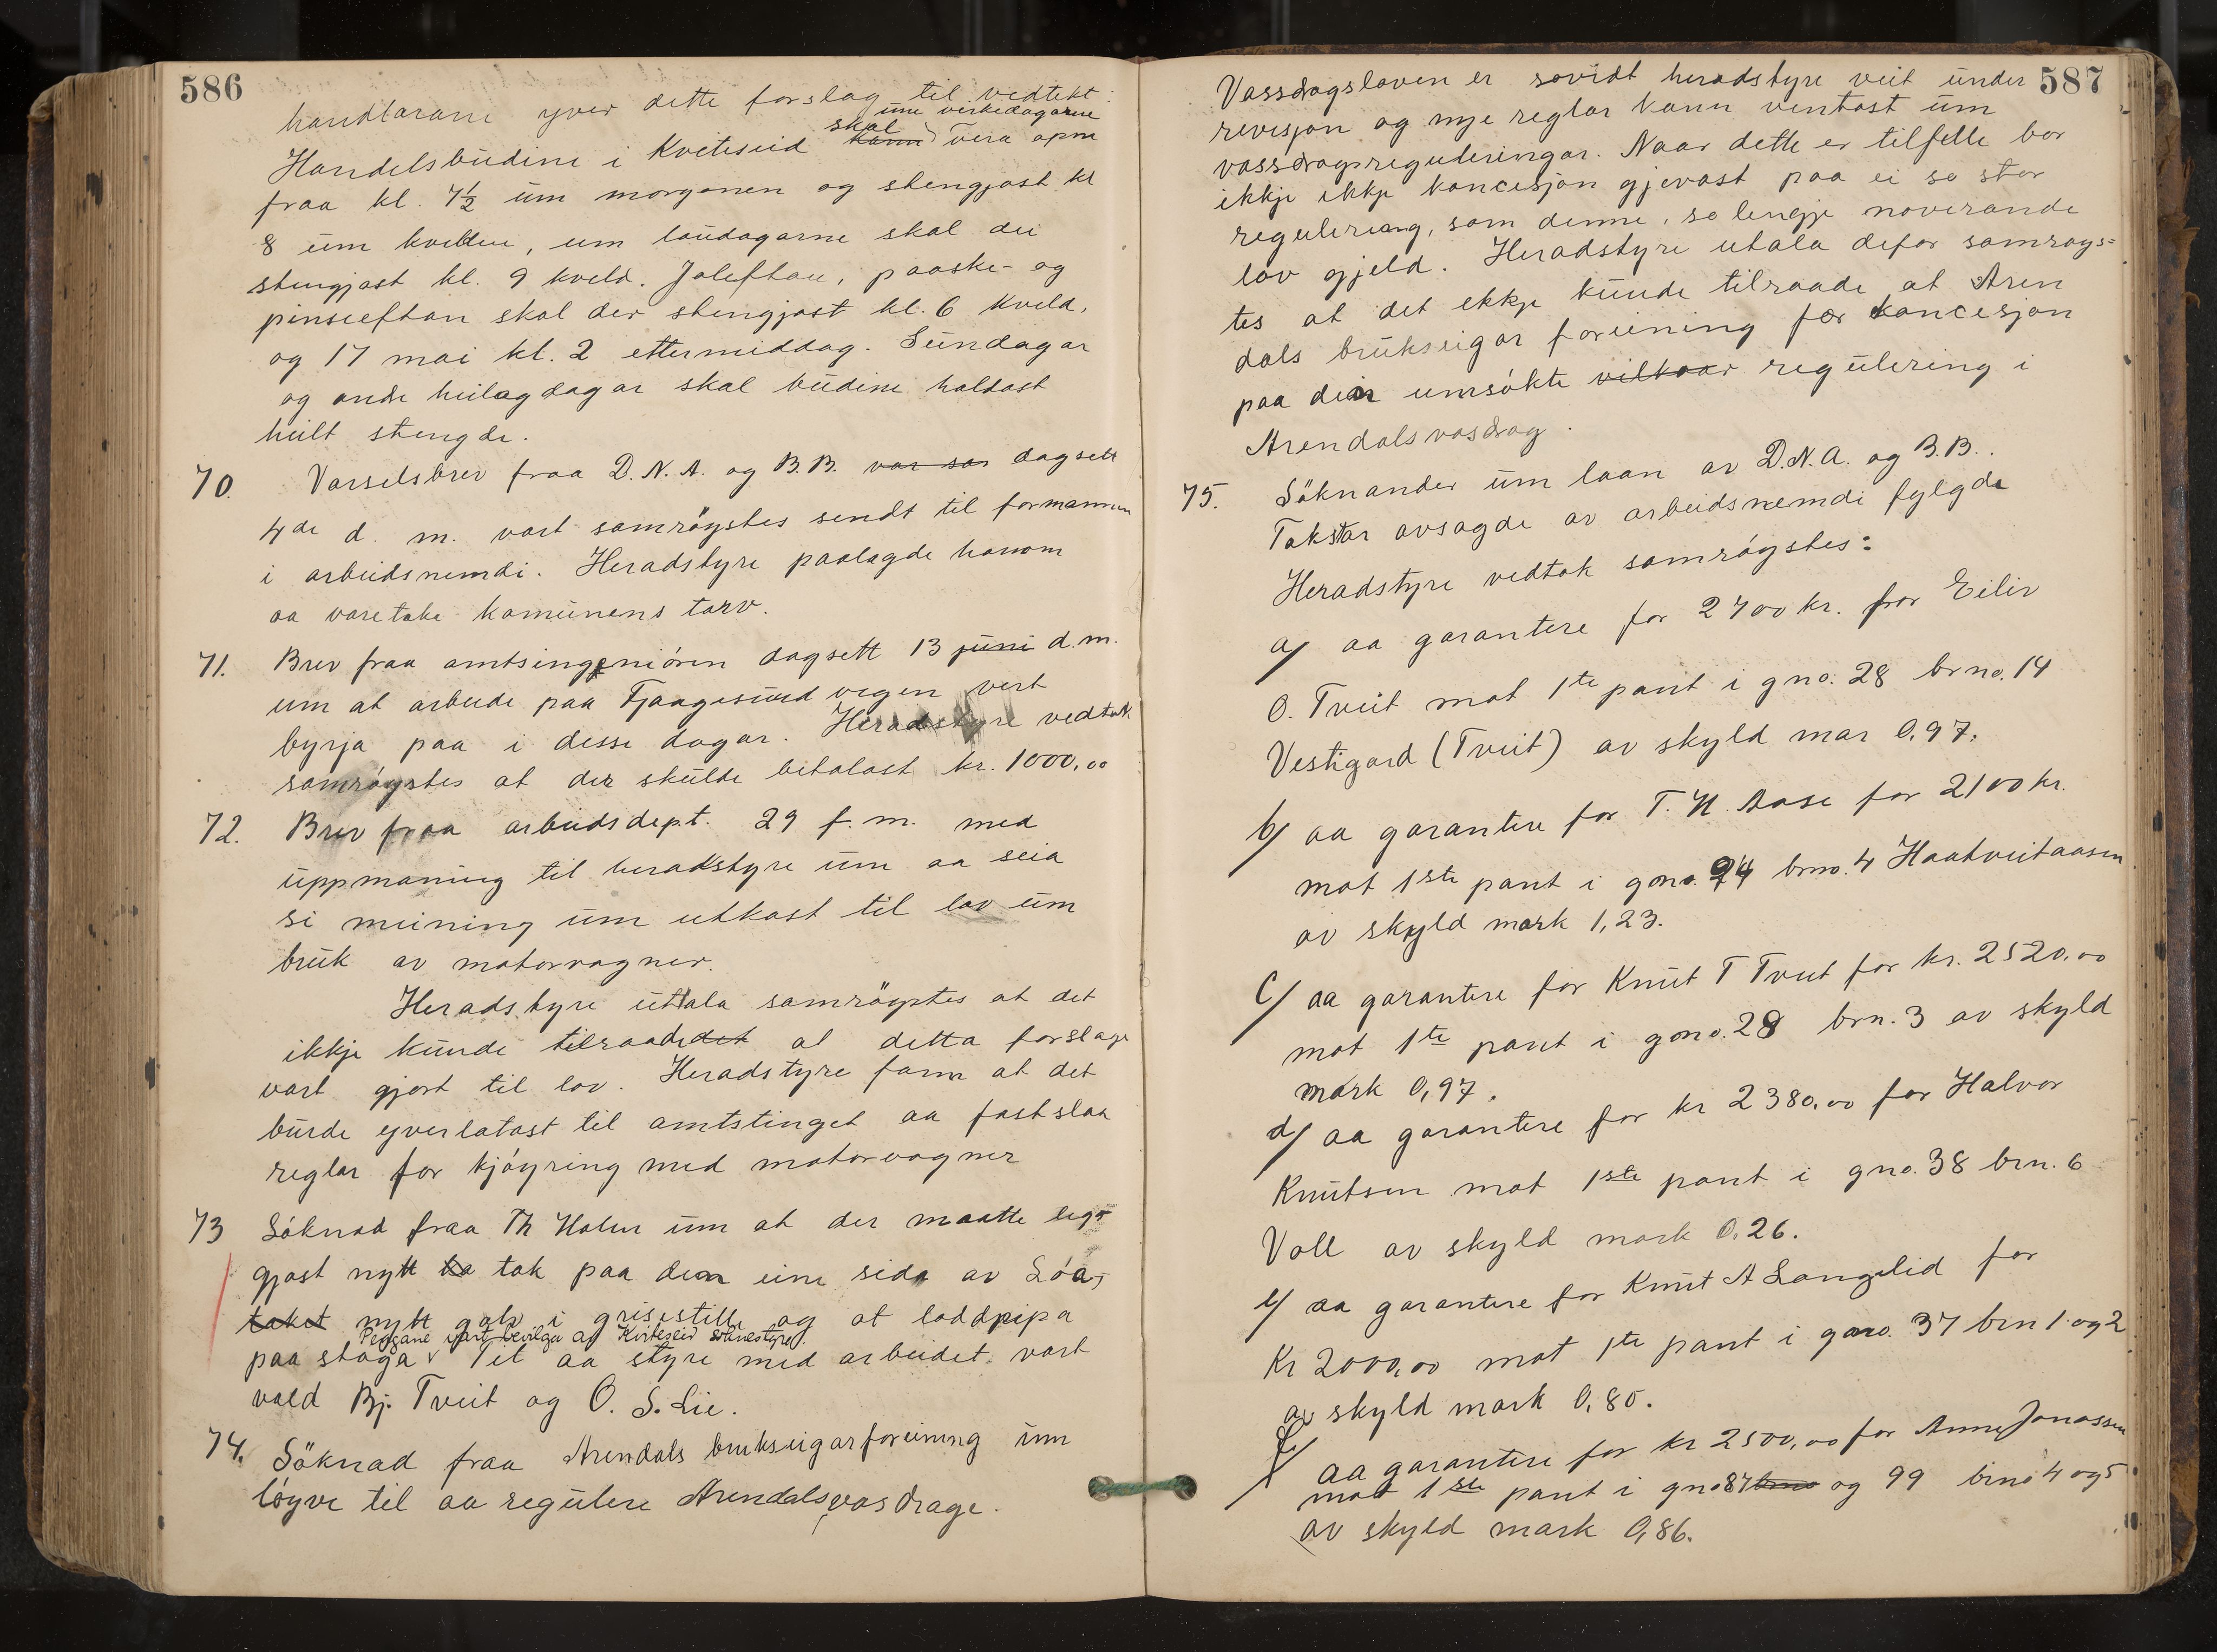 586
handlarane yver dette forslag til vedtekt:
um virkedagarne
skal
Handelsbudine i Kviteseid kann vera opne
fraa kl. 7½ um morgonen og stengjast kl
8 um kvelden, um laudagarne skal dei
stengjast kl. 9 kveld. Joleftan, paaske- og
pinseeftan skal der stengjast kl. 6 kveld,
og 17 mai kl. 2 ettermiddag. Sundagar
og andre heilagdagar skal budine haldast
heilt stengde.
70. Varselsbrev fraa D. N. A. og B. B. dagsett
4de d. m. vart samröystes sendt til formannen
i arbeidsnemdi. Heradstyre paalagde honom
aa varetaka komunens tarv.
71. Brev fraa amtsingeniören dagsett 13 juni d. m.
um at arbeide paa Fjaagesund vegen vert
byrja paa i desse dagar. Heradstyre vedtok
samröystes at der skulde betalast kr. 1000,00
72. Brev fraa arbeidsdept. 29 f. m. med
uppmaning til heradstyre um aa seia
si meining um utkast til lov um
bruk av motorvagner.
Heradstyre uttala samröystes at det
ikkje kunde tilraade det at detta forslage
vart gjort til lov. Heradstyre fann at det
burde yverlatast til amtstinget aa fastslaa
reglar for kjöyring med motorvagner
73 Söknad fraa Th Holen um at der maatte leg-
gjast nytt ta tak paa den eine sida av Löa-
taket nytt golv i grisestille og at loddpipa
Pengane vart bevilga av Kviteseid soknestyre.
paa stoga Til aa styre med arbeidet vart
vald Bj. Tveit og O. S. Lie.
74. Söknad fraa Arendals brukseigarforeining um
löyve til aa regulere Arendalsvasdrage.
587
Vassdragsloven er sovidt heradstyre veit under
revisjon og nye reglar kann ventast um
vassdragsreguleringar. Naar dette er tilfelle bör
ikkje ikkje koncesjon gjevast paa ei so stor
regulering, som denne, so lengje noverande
lov gjeld. Heradstyre utala defor samröys=
tes at det ikkje kunde tilraade at Aren
dals brukseigar foreining fær koncesjon
paa den umsökte vilkaar regulering i
Arendalsvasdrag.
75. Söknander um laan av D.N.A. og B.B..
Takstar avsagde av arbeidsnemdi fylgde
Heradstyre vedtok samröystes:
a/ aa garantere for 2700 kr. for Eiliv
O. Tveit mot 1te pant i gno. 28 brno. 14
Vestigard (Tveit) av skyld mar 0,97.
b/ aa garantere for T. N. Aase for 2100 kr.
mot 1ste pant i gno. 94 brno. 4 Haatveitaasen
av skyld mark 1,23.
c/ aa garantere for Knut T Tveit for kr. 2520,00
mot 1te pant i gno. 28 brn. 3 av skyld
mark 0,97.
d/ aa garantere for kr 2380,00 for Halvor
Knutsen mot 1ste pant i gno. 38 brn. 6
Voll av skyld mark 0,26.
e/ aa garantere for Knut A Langelid for
Kr 2000,00 mot 1te pant i gno. 37 brn 1 og 2
av skyld mark 0,80.
f/ aa garantere for kr 2500,00 for Anne Jonassen
mot 1ste pant i gno 87 brno og 99 brno 4 og 5
av skyld mark 0,86.